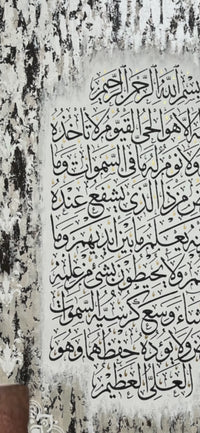 بِسْمِ اللَّهِ الرَّحْمَٰنِ الرَّحِيمِ
هُوَ الْحَيُّ الْقَيُّومُ لَا تَأْخُذُهُ
وَلَا نَوْمٌ لَهُ مَا فِي السَّمَوَاتِ وَمَا
مَنْ ذَا الَّذِي يَشْفَعُ عِنْدَهُ
يَعْلَمُ مَا بَيْنَ أَيْدِيهِمْ وَمَا
وَلَا يُحِيطُونَ بِشَيْءٍ مِنْ عِلْمِهِ
وَسِعَ كُرْسِيُّهُ السَّمَوَاتِ
وَلَا يَؤُدُهُ حِفْظُهُمَا وَهُوَ
الْعَلِيُّ الْعَظِيمُ